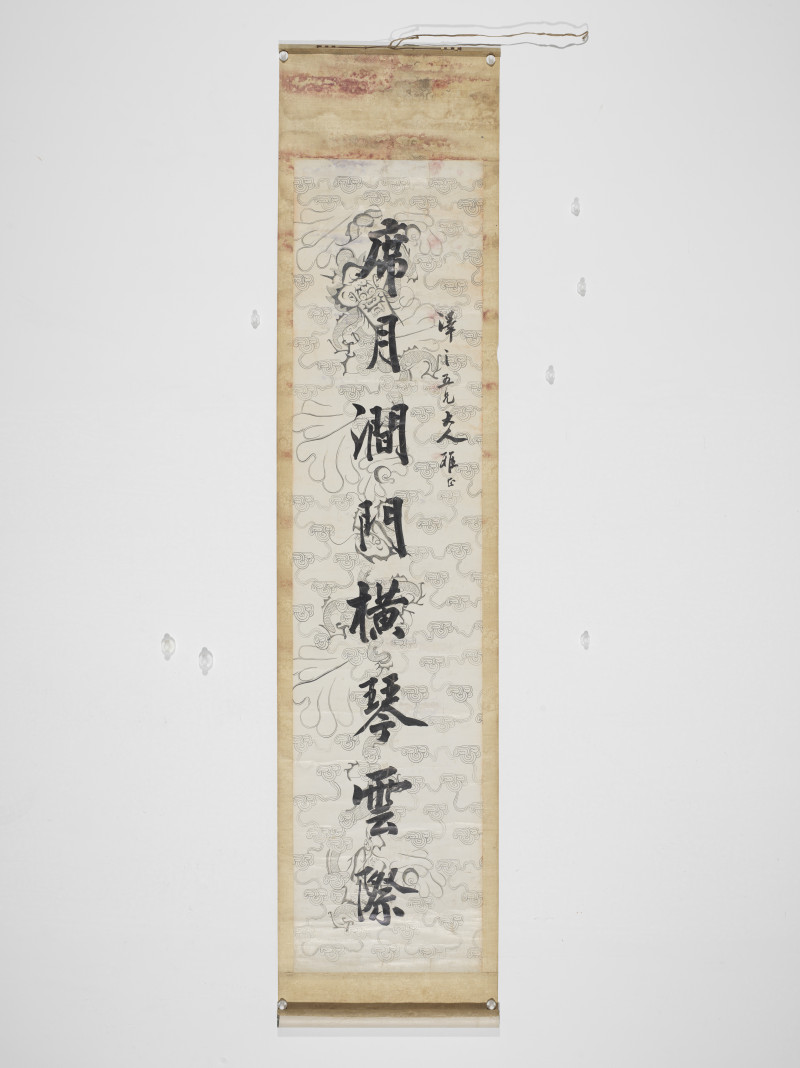 澤之五兄大人雅正
席月澗門橫琴雲際